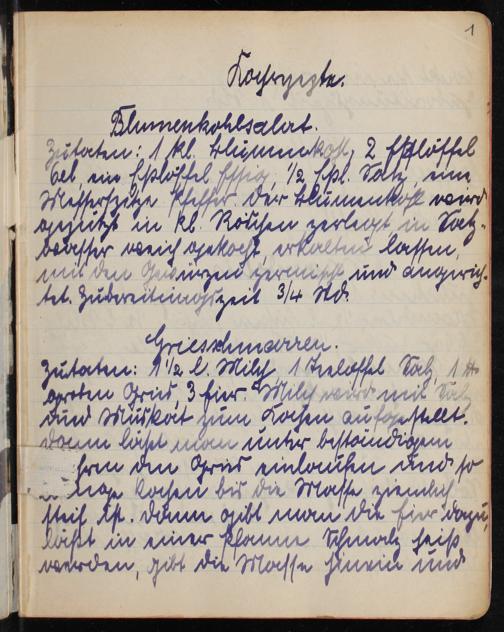 1
Kochrezepte.
Blumenkohlsalat.
Zutaten: 1 kl. Blumenkohl, 2 Eßlöffel
Oel, ein Eßlöffel Essig, 1/2 Eßl. Salz, eine
Messerspitze Pfeffer. Der Blumenkohl wird
geputzt in kl. Röschen zerlegt, in Salz-
wasser weich gekocht, erkalten lassen,
mit den Gewürzen vermischt und angerich-
tet. Zubereitungszeit 3/4 Std.
Grieschmarren.
Zutaten: 1 1/2 l. Milch, 1 Teelöffel Salz, 1 ℔
groben Gries, 3 Eier. Milch wird mit Salz
und Muskat zum Kochen aufgestellt.
Dann läßt man unter beständigem
den Gries einlaufen und so
lange kochen bis die Masse ziemlich
steif ist. Dann gibt man die Eier dazu,
läßt in einer Pfanne Schmalz heiß
werden, gibt die Masse hinein und